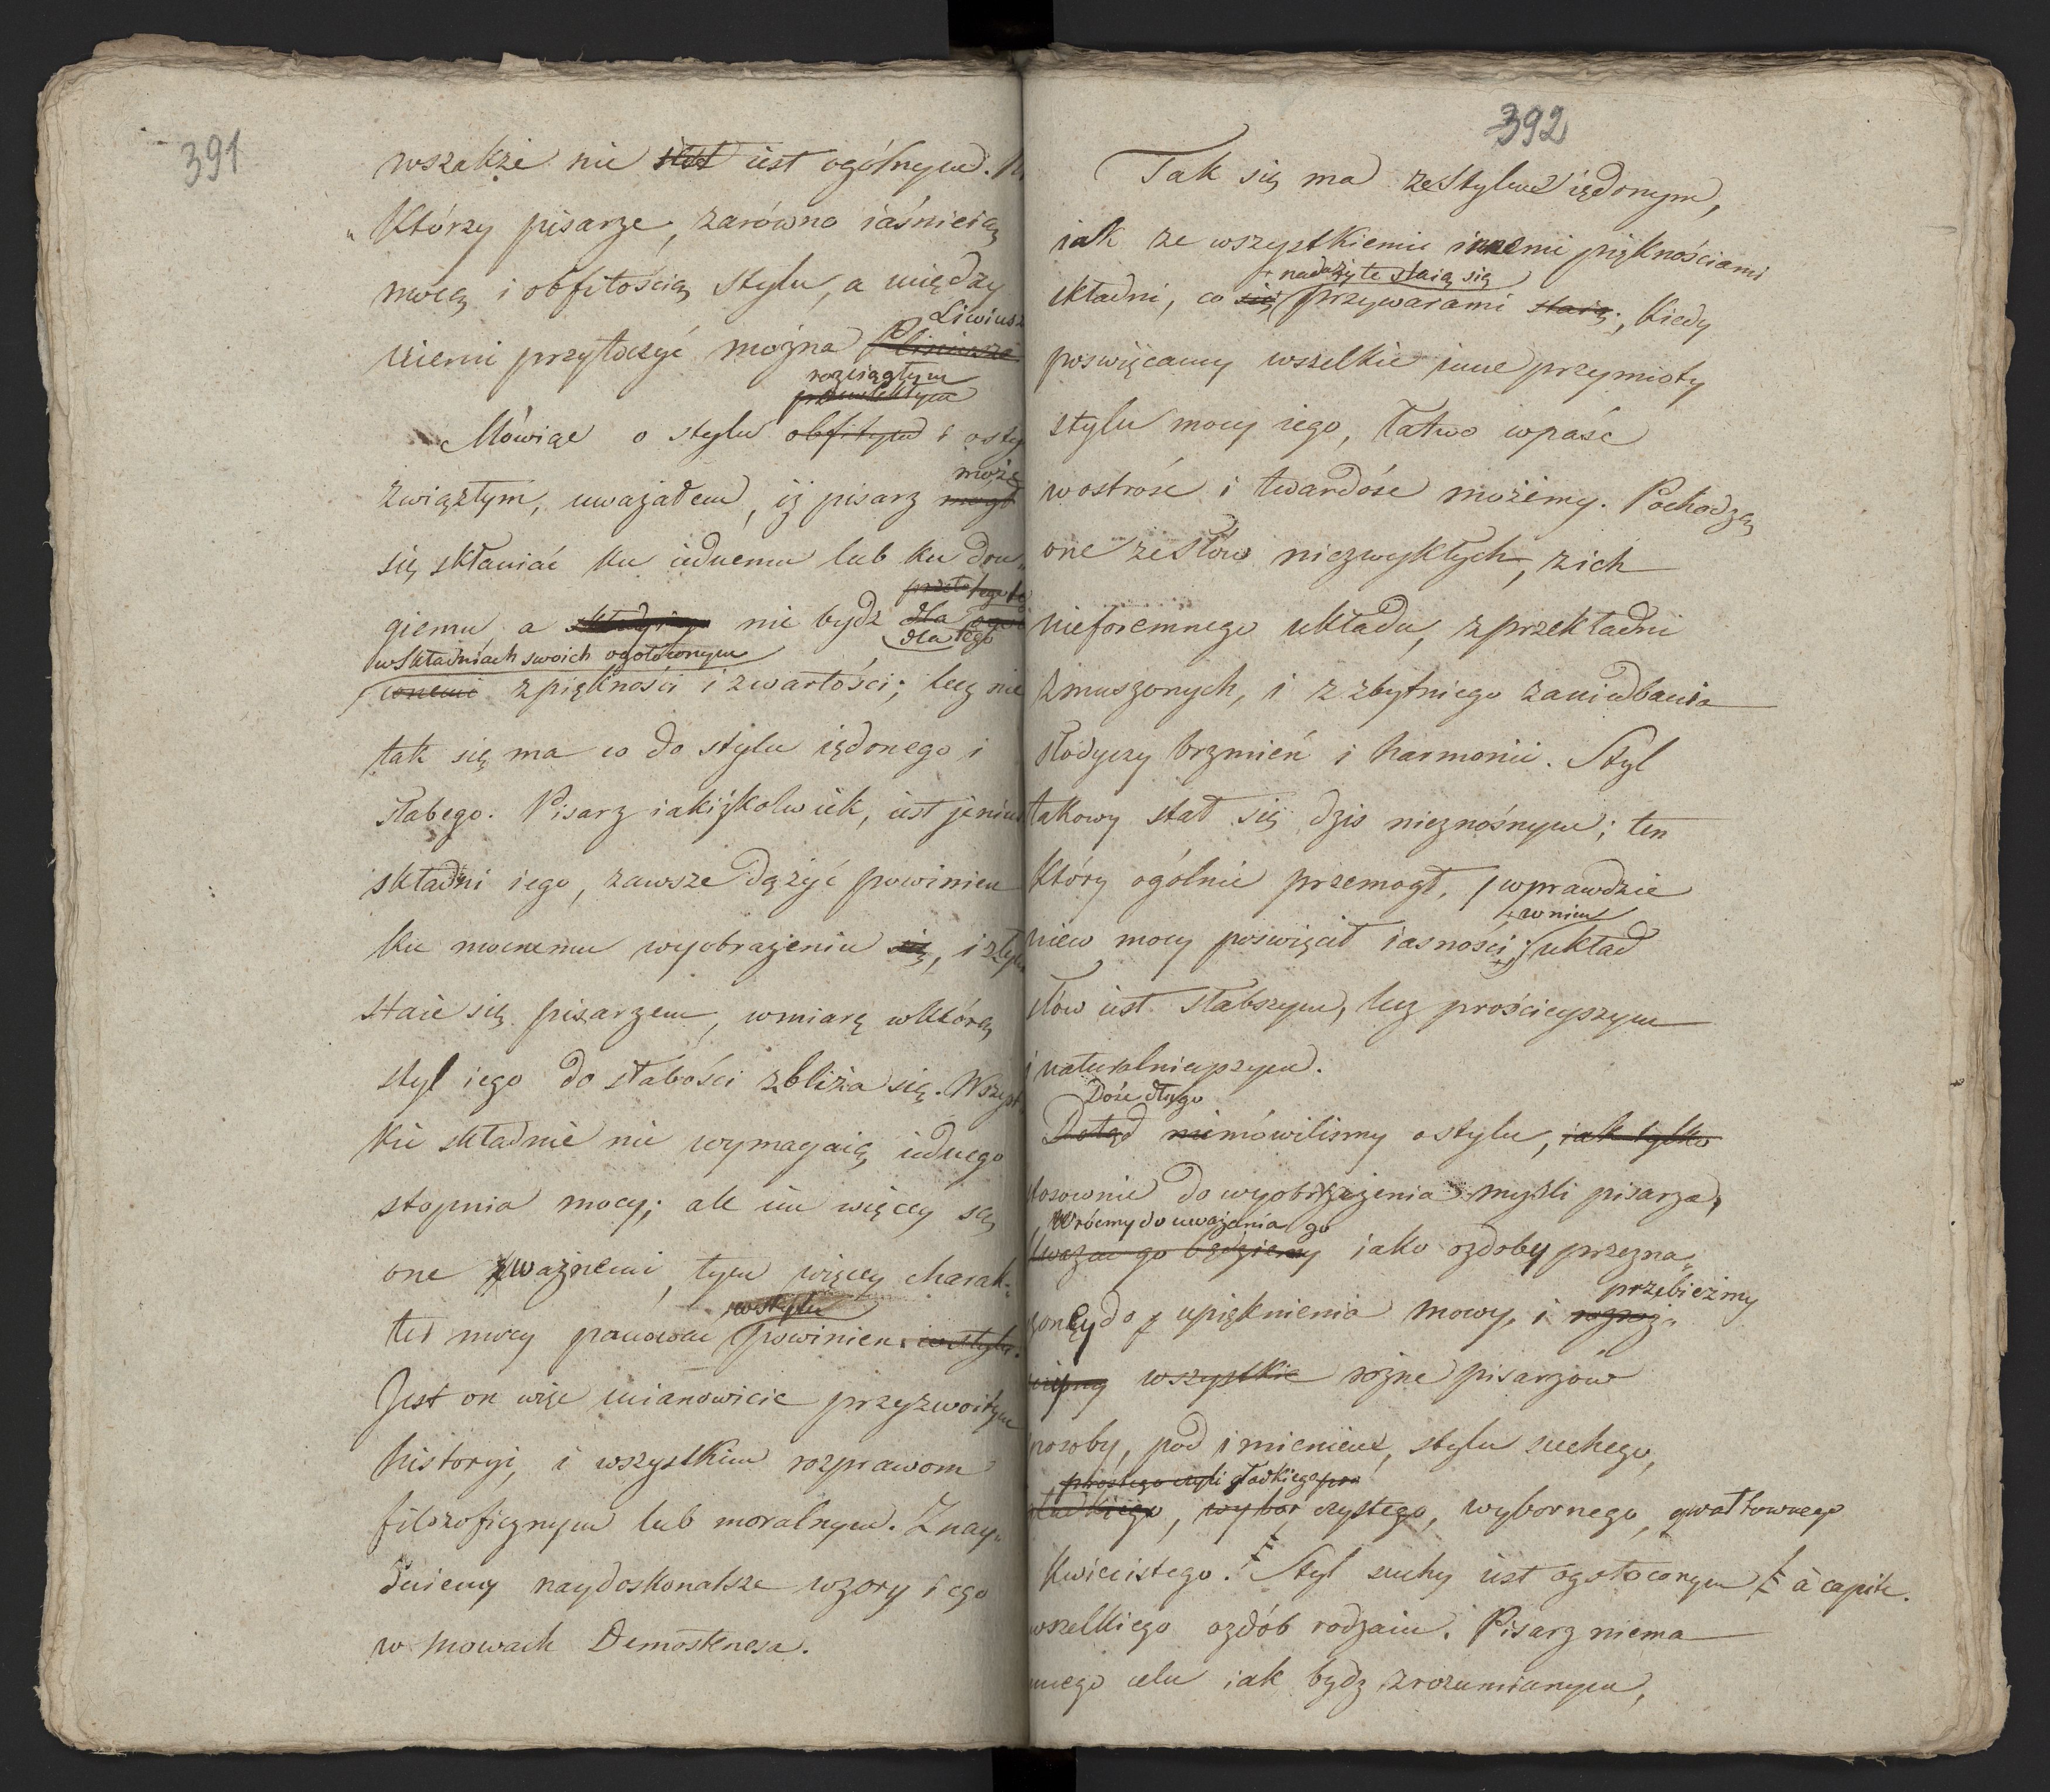 391
wszakże nie iest ogólnym.
„Którzy pisarze, zarówno iaśnieią
mocą i obfitością stylu, a między
Liwiusz
niemi przytoczyć można
rozciągłym
Mówiąc o stylu obfitym i
może
związłym, uważałem, iż pisarz mógł
się skłaniać ku iednemu lub ku dru„
giemu, a nie bydź dla
dla tego
w składniach swoich ogołoconym
z piękności i zwartości; lecz nie
tak się ma co do stylu iędonego i
słabego. Pisarz iakiżkolwiek, iest
składni iego, zawsze dążyć powinien
ku mocnemu wyobrażeniu się, i złym
staie się pisarzem, w miarę w którey
styl iego do słabości zbliża się. Wszyst„
kie składnie nie wymagaią iednego
stopnia mocy; ale im więcey są
one ważnemi, tym więcey charak„
w stylu
ter mocy panować powinien w stylu.
Jest on więc mianowicie przyzwoitym
historyi, i wszystkim rozprawom
filozoficznym lub moralnym. Znay„
dziemy naydoskonalsze wzory iego
w mowach Demostenesa.
392
Tak się ma ze stylem iędonym,
iak ze wszystkiemi innemi pięknościami
+ nadaży te staią się
składni, co się przywarami staią; kiedy
poswięcamy wszelkie inne przymioty
stylu mocy iego, łatwo wpaść
w ostrość i twardość możemy. Pochodzą
one ze słów niezwykłych, z ich
nieforemnego układu, z przekładni
zmuszonych, i z zbytniego zaniedbania
słodyczy brzmień i harmonii. Styl
takowy stał się dziś nieznośnym; ten
który ogólnie przemógł, wprawdzie
+ w nim
niew mocy poswięcił iasności; układ
słów iest słabszym, lecz prościeyszym
i naturalnieyszym.
Dość długo
Dotąd nie mówilismy o stylu, iak tylko
stosownie do wyobrażenia myśli pisarza,
Wróćmy do uważania go
uważać go będziemy iako ozdoby przezna„
przebieżmy
czoney do upięknienia mowy, i
wszystkie rożne pisarzów
sposoby, pod imieniem, stylu suchego,
prostego czyli gładkiego
gładkiego, wybor czystego, wybornego, gwałtownego
kwiecistego. Styl suchy iest ogołoconym à capite.
wszelkiego ozdób rodzaiu. Pisarz niema
innego celu iak bydź zrozumianym,